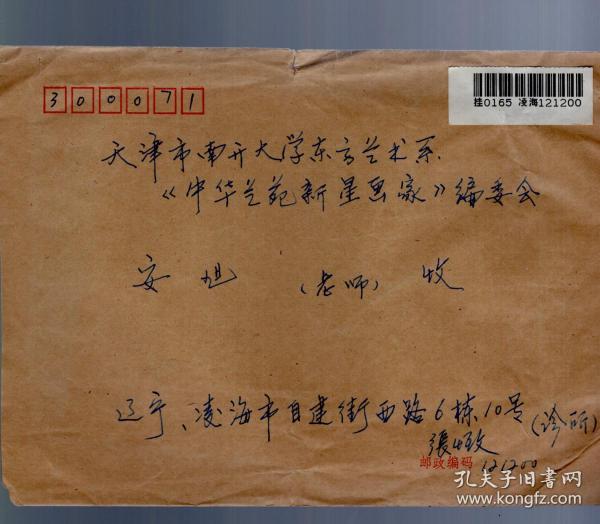 300071
桂0165 凌海121200
天津市南开大学东方艺术系.
《中华艺苑新星画家》编委会
安旭 (老师) 收
辽宁、凌海市自建街西路6栋10号(诊所)
張
邮政编码 121200
孔夫子旧书网
www.kongfz.com